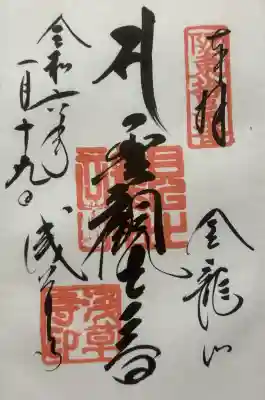 奉拝
金龍山
聖観世音
淺草寺
淺草寺印
令和六年
一月十九日